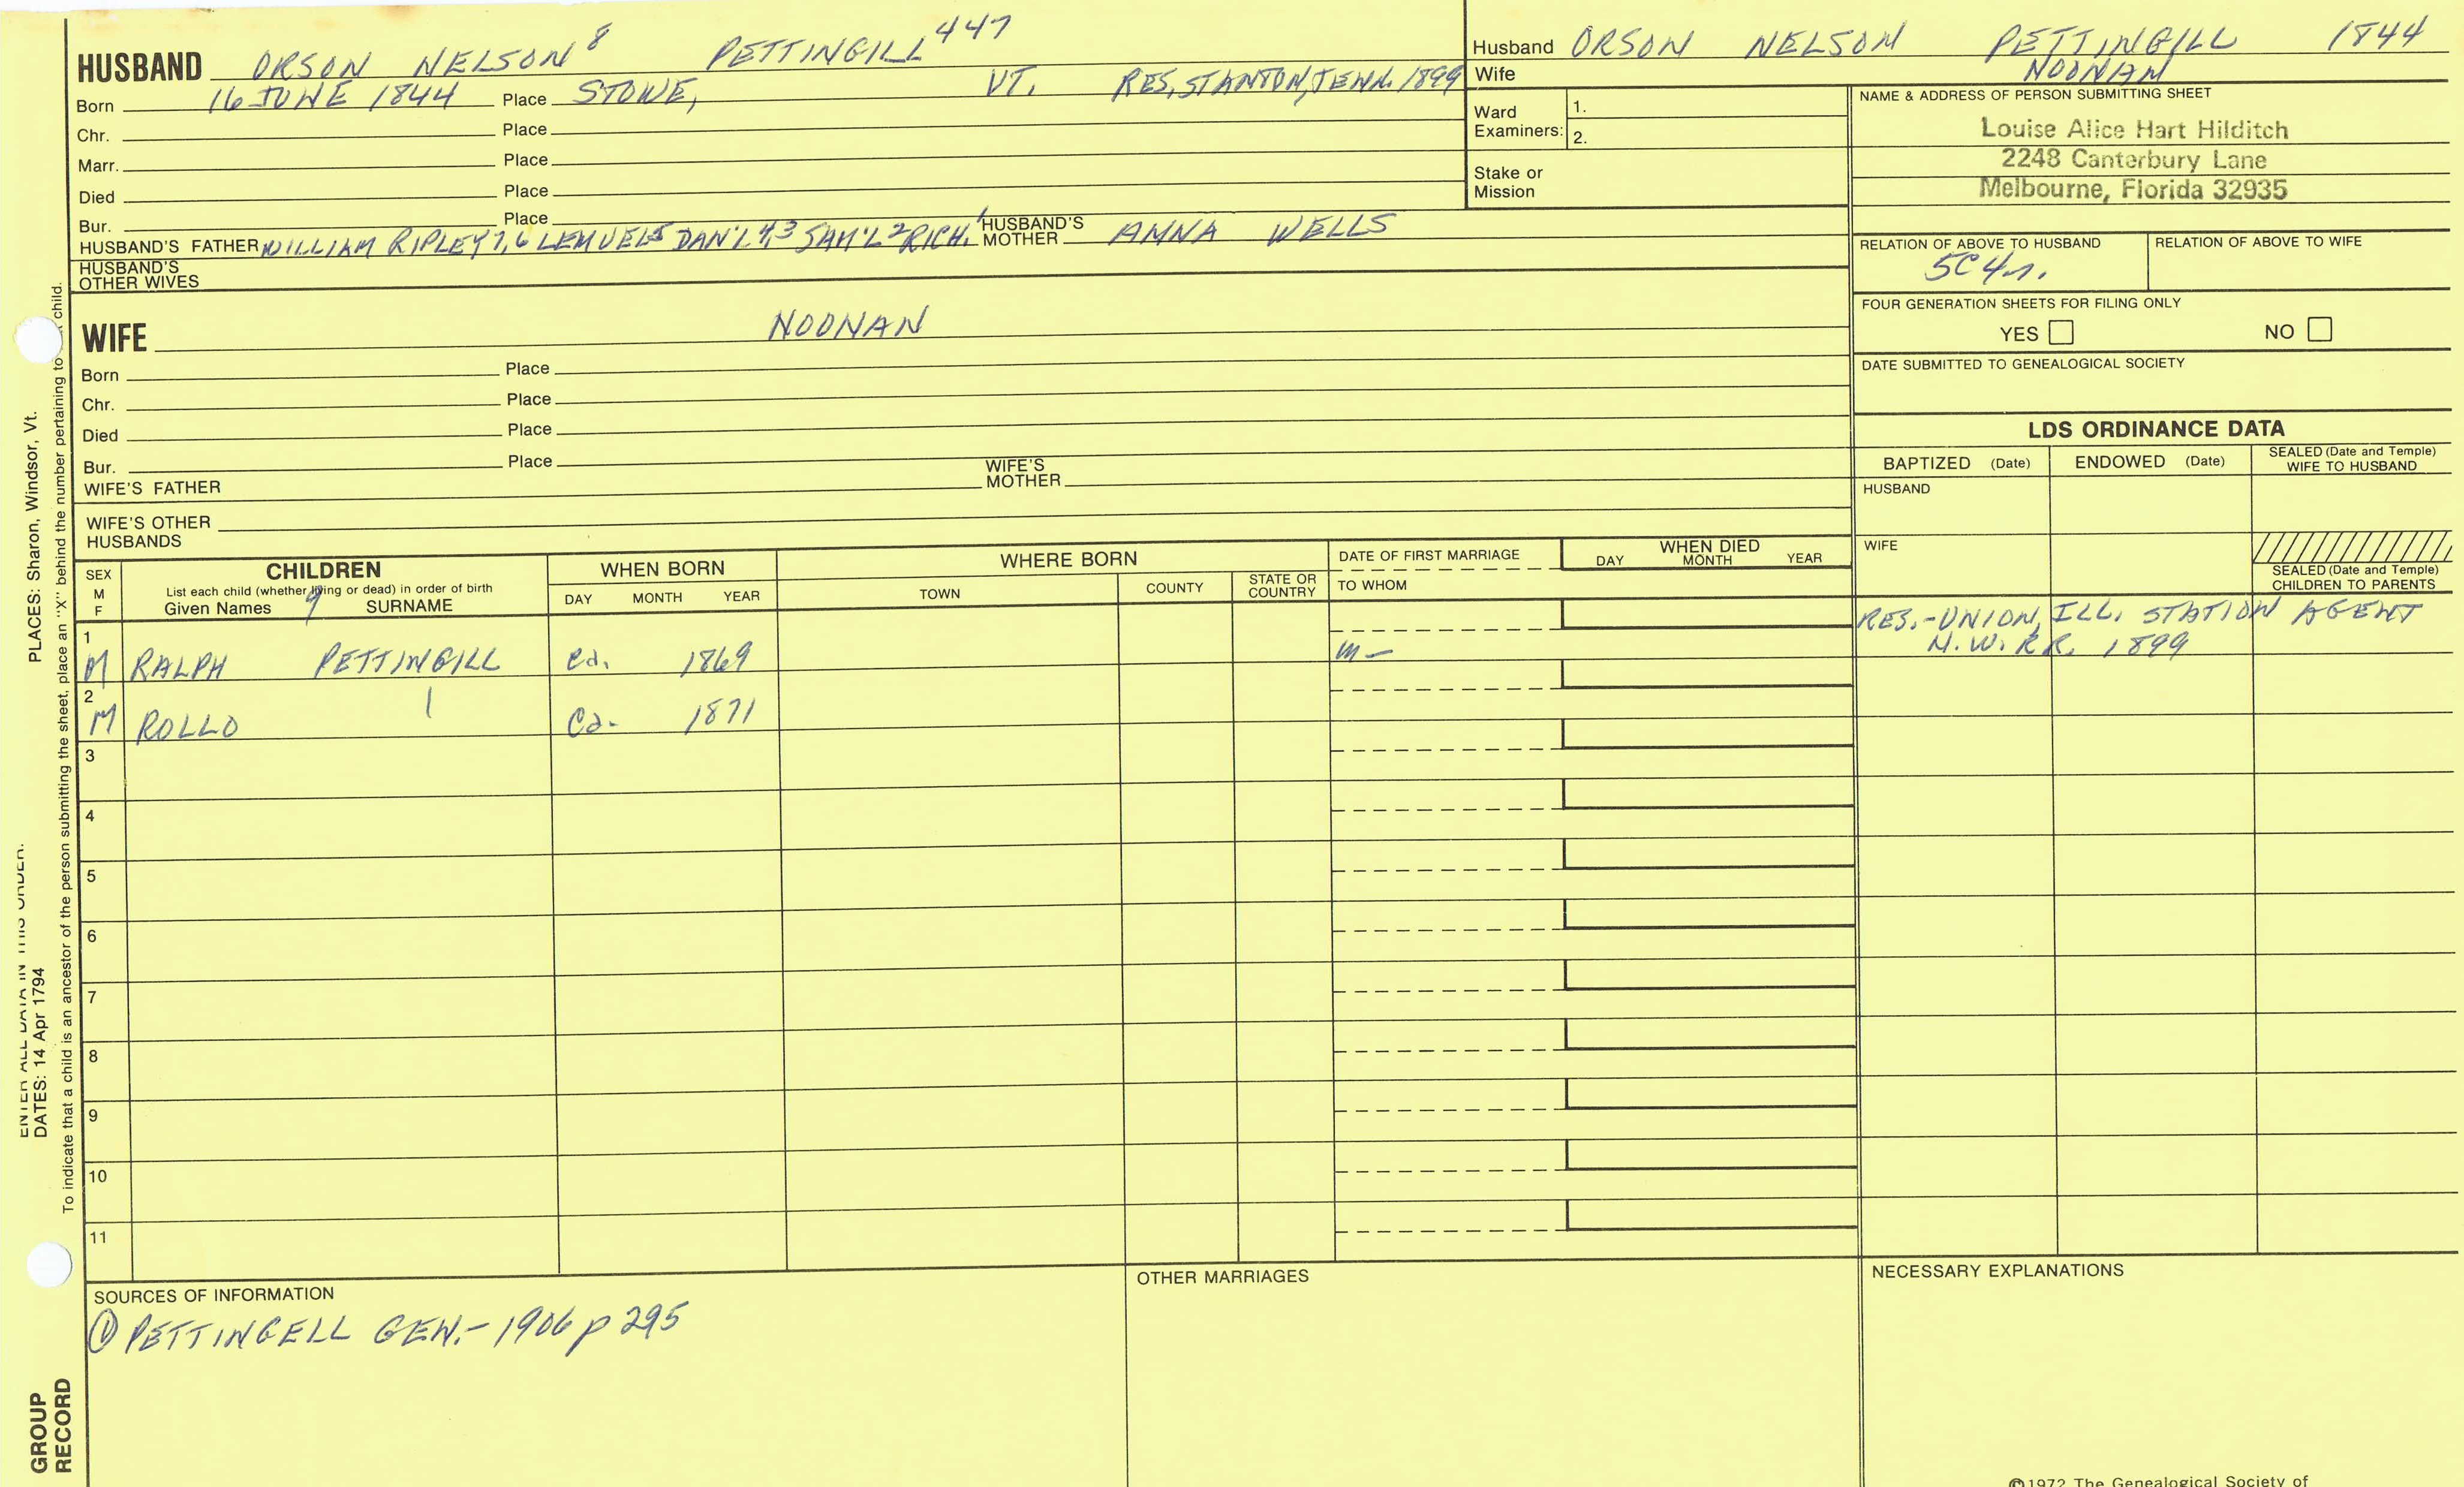 HUSBAND ORSON NELSON 8 PETTINGILL 447
Born 16 JUNE 1844 Place STOWE, VT. RES, STANTON, TENN. 1899
Chr. Place
Marr. Place
Died Place
Bur. Place
HUSBAND'S FATHER WILLIAM RIPLEY 7,6 LEMUEL 5 DAN'L 4,3 SAM'L 2 RICH. 1 HUSBAND'S MOTHER ANNA WELLS
HUSBAND'S OTHER WIVES
WIFE NOONAN
Born Place
Chr. Place
Died Place
Bur. Place
WIFE'S FATHER WIFE'S MOTHER
WIFE'S OTHER HUSBANDS
Husband ORSON NELSON PETTINGILL 1844
Wife NOONAN
Ward Examiners: 1.
2.
Stake or Mission
NAME & ADDRESS OF PERSON SUBMITTING SHEET
Louise Alice Hart Hilditch
2248 Canterbury Lane
Melbourne, Florida 32935
RELATION OF ABOVE TO HUSBAND RELATION OF ABOVE TO WIFE
5C4r.
FOUR GENERATION SHEETS FOR FILING ONLY
YES NO
DATE SUBMITTED TO GENEALOGICAL SOCIETY
LDS ORDINANCE DATA
BAPTIZED (Date) ENDOWED (Date) SEALED (Date and Temple) WIFE TO HUSBAND
HUSBAND
WIFE
SEALED (Date and Temple) CHILDREN TO PARENTS
SEX M F
CHILDREN
List each child (whether living or dead) in order of birth
Given Names 9 SURNAME
WHEN BORN
DAY MONTH YEAR
WHERE BORN
TOWN COUNTY STATE OR COUNTRY
DATE OF FIRST MARRIAGE
TO WHOM
WHEN DIED
DAY MONTH YEAR
1 M RALPH PETTINGILL ca. 1869 m –
RES.-UNION, ILL. STATION AGENT
N.W. R.R. 1899
2 M ROLLO | Ca. 1871
3
4
5
6
7
8
9
10
11
SOURCES OF INFORMATION
① PETTINGELL GEN.- 1906 p 295
OTHER MARRIAGES
NECESSARY EXPLANATIONS
©1972 The Genealogical Society of
PLACES: Sharon, Windsor, Vt.
ENTER ALL DATA IN THIS ORDER:
DATES: 14 Apr 1794
To indicate that a child is an ancestor of the person submitting the sheet, place an "X" behind the number pertaining to child.
GROUP
RECORD